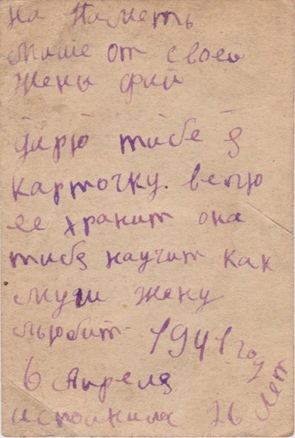 на Память
Мише от своей
жены Фии
Дарю тибе я
карточку. велю
ее хранит она
тибя научит как
мужи жену
любит 1941 год
6 Апреля
исполнила 26 лет